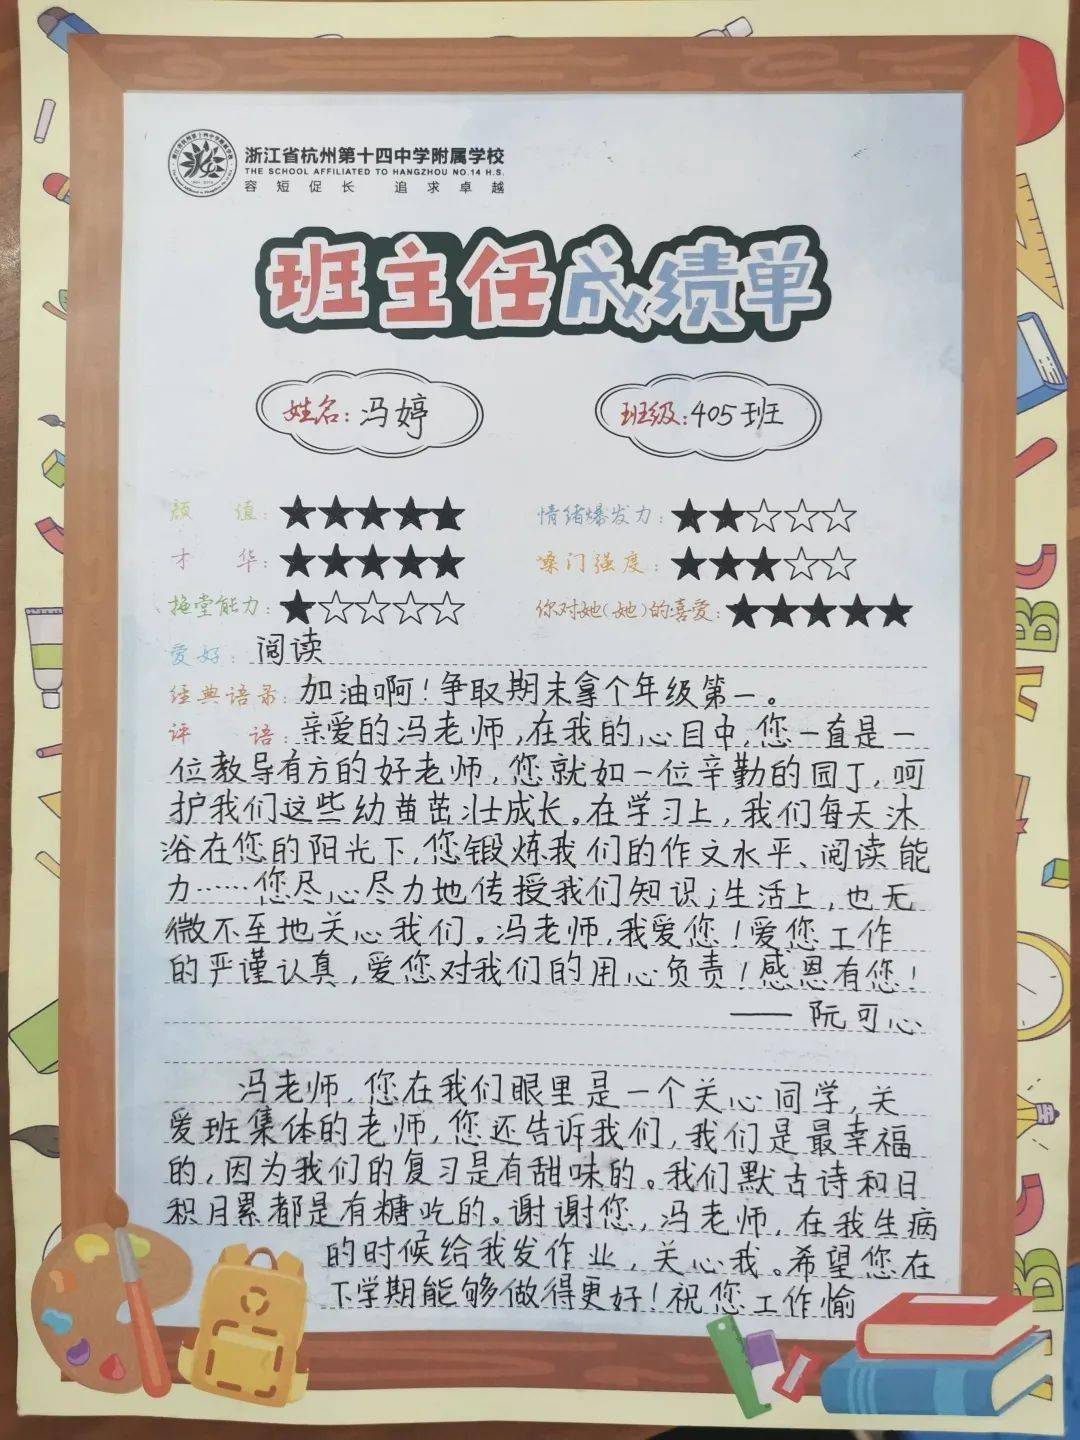 浙江省杭州第十四中学附属学校
THE SCHOOL AFFILIATED TO HANGZHOU NO.14 H.S.
容短促长 追求卓越
班主任成绩单
姓名：冯婷 班级：405班
颜值：★★★★★ 情绪爆发力：★★☆☆☆
才华：★★★★★ 嗓门强度：★★★☆☆
拖堂能力：★☆☆☆☆ 你对她(她)的喜爱：★★★★★
爱好：阅读
经典语录：加油啊！争取期末拿个年级第一。
评语：亲爱的冯老师，在我的心目中，您一直是一
位教导有方的好老师，您就如一位辛勤的园丁，呵
护我们这些幼苗茁壮成长。在学习上，我们每天沐
浴在您的阳光下，您锻炼我们的作文水平、阅读能
力……您尽心尽力地传授我们知识；生活上，也无
微不至地关心我们。冯老师，我爱您！爱您工作
的严谨认真，爱您对我们的用心负责！感恩有您！
——阮可心
冯老师，您在我们眼里是一个关心同学，关
爱班集体的老师，您还告诉我们，我们是最幸福
的，因为我们的复习是有甜味的。我们默古诗和日
积月累都是有糖吃的。谢谢您，冯老师，在我生病
的时候给我发作业，关心我。希望您在
下学期能够做得更好！祝您工作愉